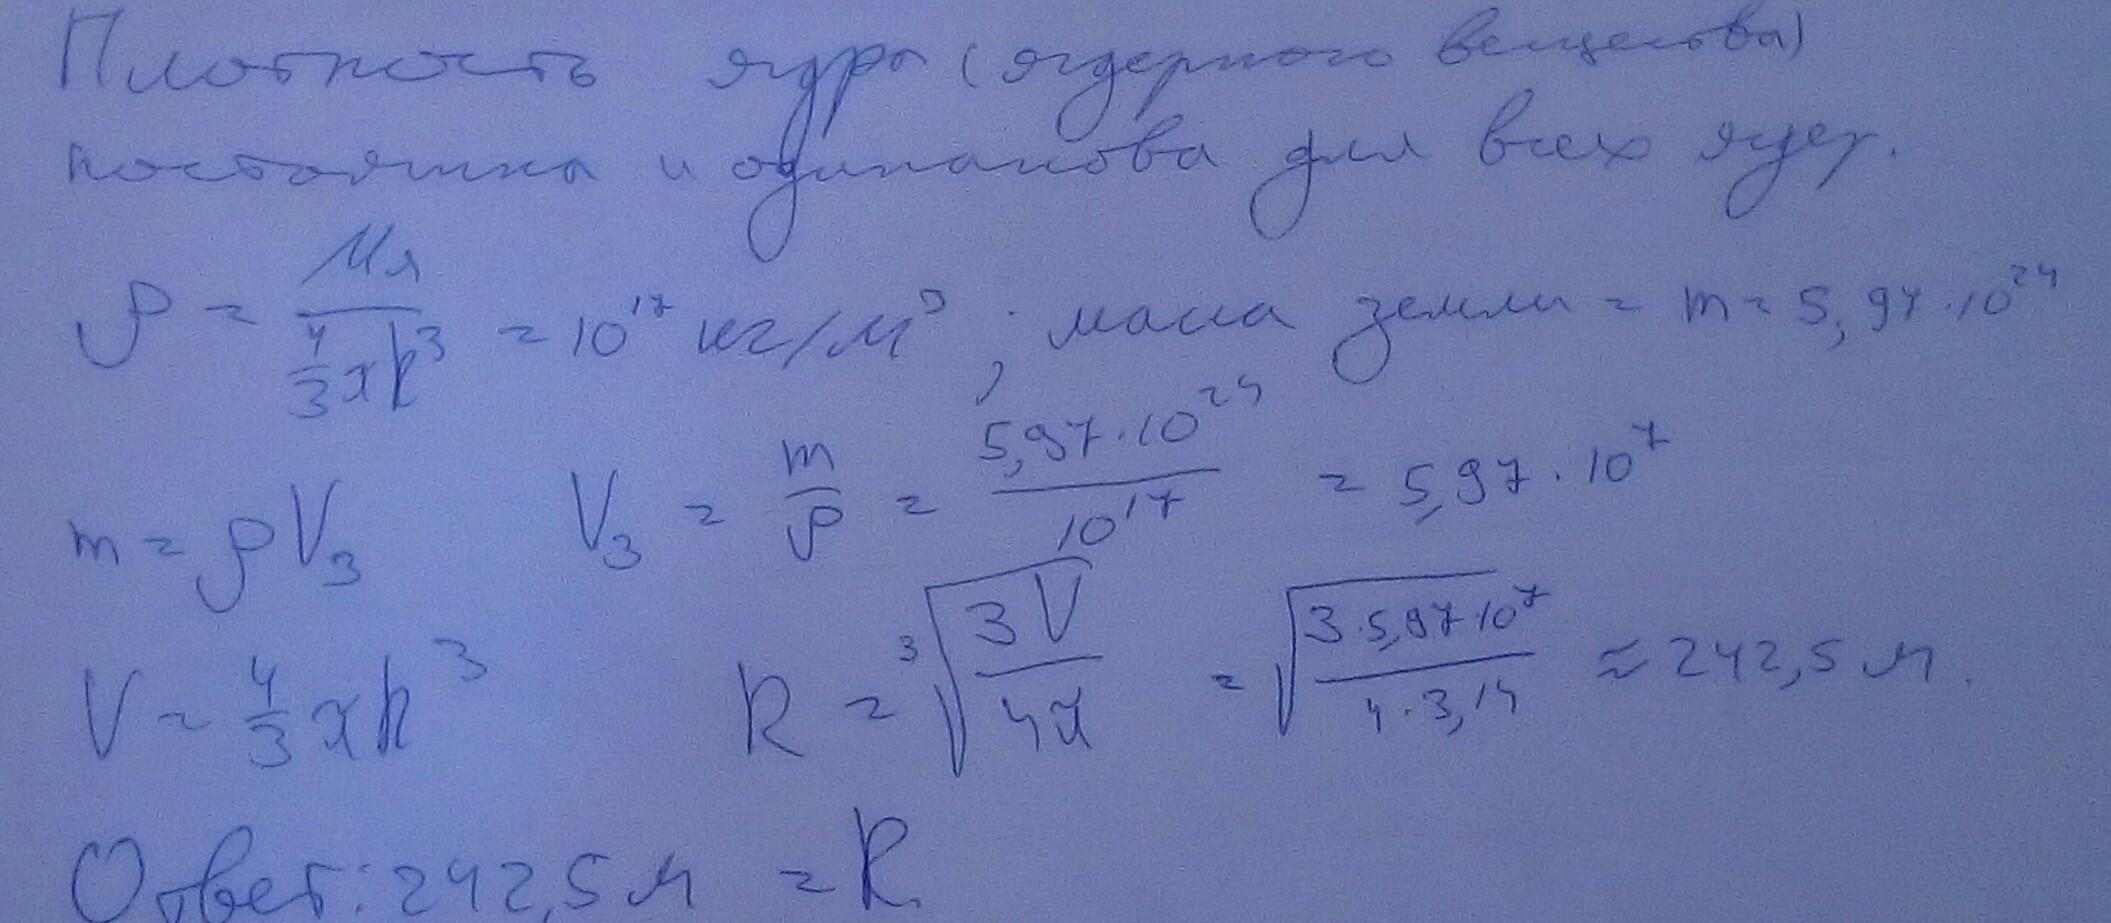 Плотность ядра (ядерного вещества)
постоянна и одинакова для всех ядер.
ρ = Mя / (4/3 πR³) = 10¹⁷ кг/м³ ; масса земли = m = 5,97·10²⁴
m = ρV₃ V₃ = m/ρ = 5,97·10²⁴ / 10¹⁷ = 5,97·10⁷
V = 4/3 πR³ R = ³√(3V / 4π) = √(3·5,97·10⁷ / 4·3,14) ≈ 242,5 м.
Ответ: 242,5 м = R.